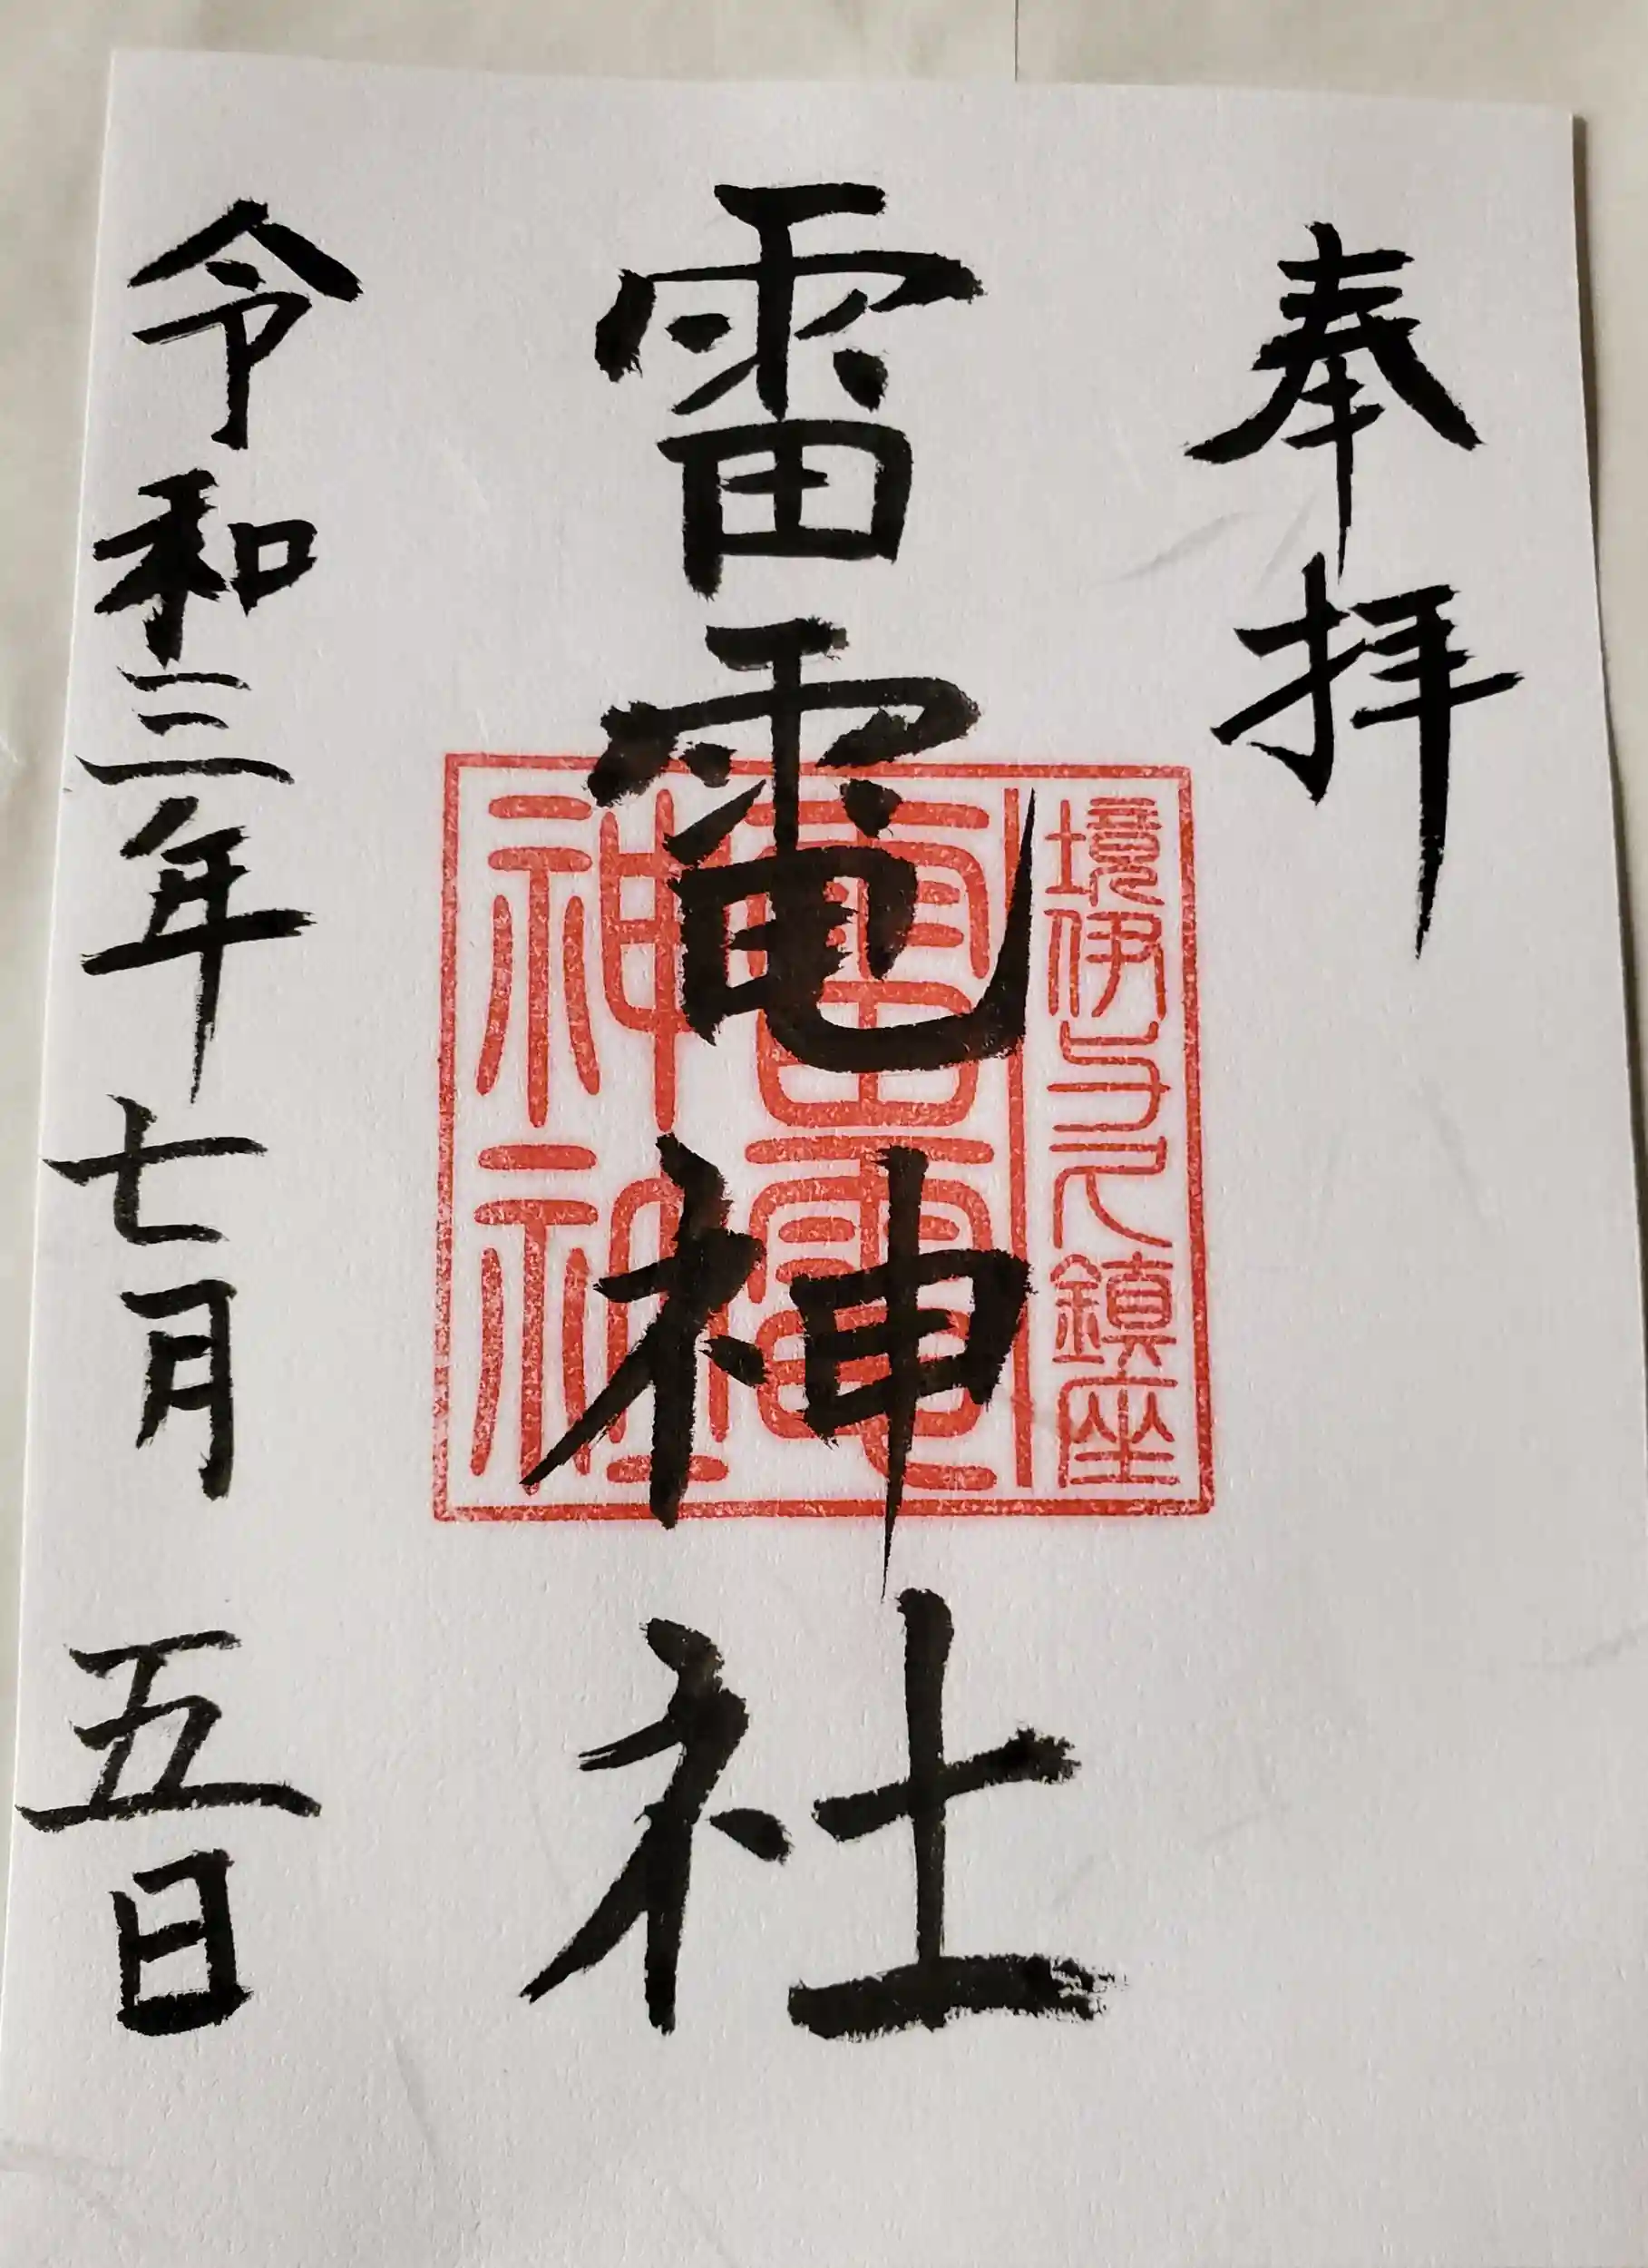 奉拝
雷電神社
令和三年七月五日
境伊与久鎮座
雷電
神社